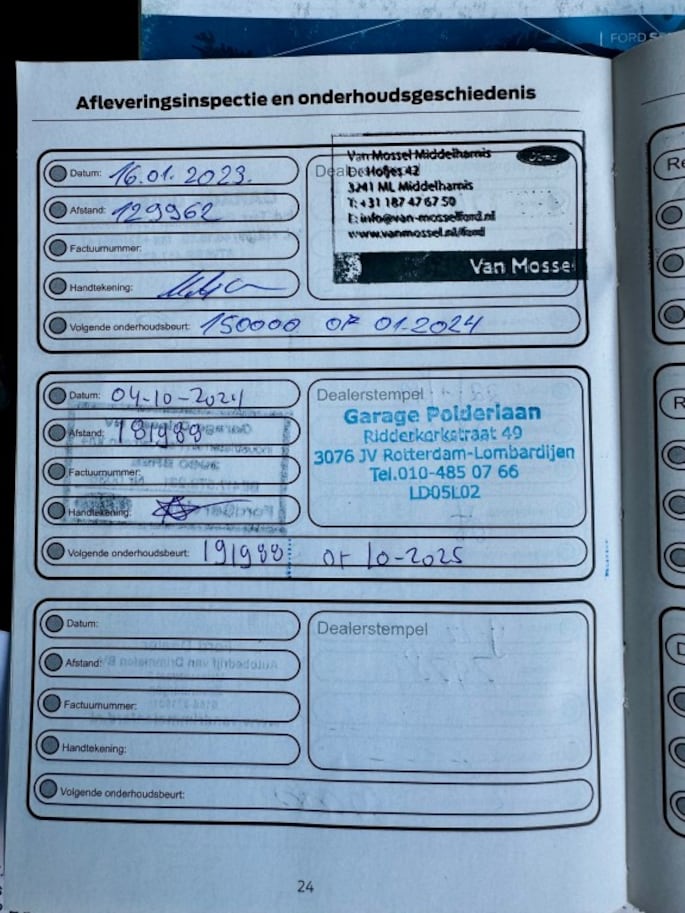 FORD SE
Afleveringsinspectie en onderhoudsgeschiedenis
Datum: 16.01.2023.
Afstand: 129962
Factuurnummer:
Handtekening:
Volgende onderhoudsbeurt: 150000 OF 01-2024
Van Mossel Middelharnis
De Hofjes 42
3241 ML Middelharnis
T: +31 187 47 67 50
E: info@van-mosselford.nl
www.vanmossel.nl/ford
Van Mosse
Datum: 04-10-2024
Afstand: 181988
Factuurnummer:
Handtekening:
Volgende onderhoudsbeurt: 191988 or 10-2025
Dealerstempel
Garage Polderlaan
Ridderkerkstraat 49
3076 JV Rotterdam-Lombardijen
Tel.010-485 07 66
LD05L02
Datum:
Afstand:
Factuurnummer:
Handtekening:
Volgende onderhoudsbeurt:
Dealerstempel
24